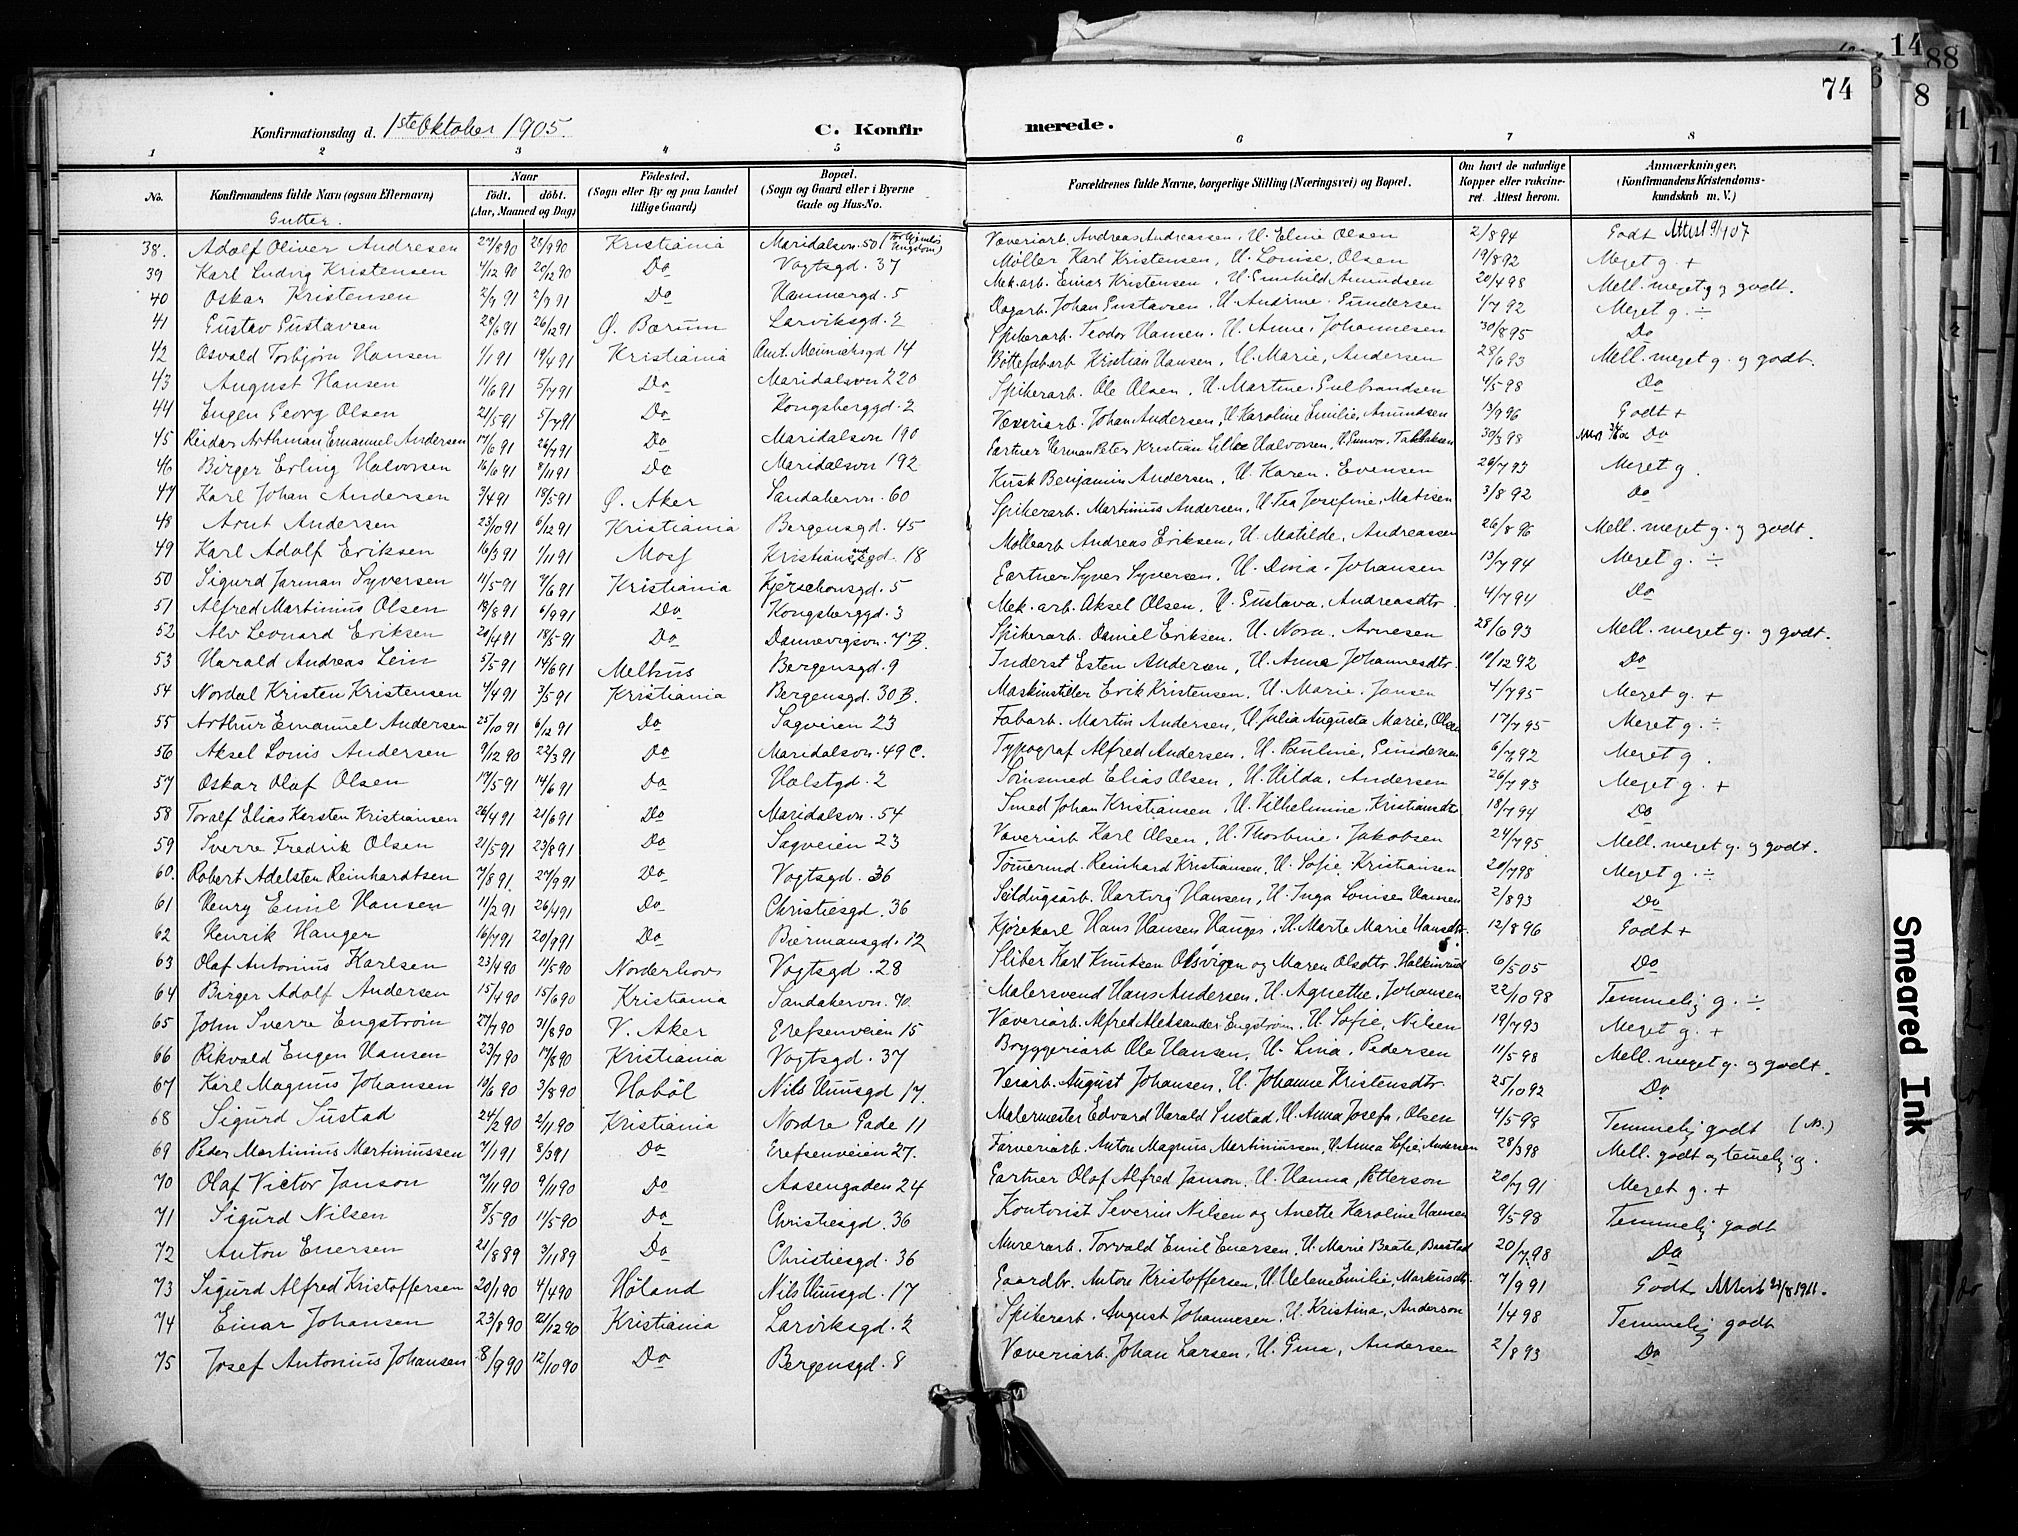 14
88
6
8
11
1
74
Konfirmationsdag d. 1ste Oktober 1905. C. Konfirmerede.
1 2 3 4 5 6 7 8
No. Konfirmandens fulde Navn (ogsaa Efternavn) Naar Födt. döbt. (Aar, Maaned og Dag) Födested. (Sogn eller By og paa Landet tillige Gaard) Bopæl. (Sogn og Gaard eller i Byerne Gade og Hus-No. Forældrenes fulde Navne, borgerlige Stilling (Næringsvei) og Bopæl. Om havt de naturlige Kopper eller vakcineret. Attest herom. Anmærkninger. (Konfirmandens Kristendomskundskab m. V.)
Gutter.
38. Adolf Oliver Andresen 27/8 90 28/9 90 Kristiania Maridalsvn. 50 Væveriarb. Andreas Andreassen, H. Eline Olsen 2/8 94 Godt Attest 9/1 07
39 Karl Ludvig Kristensen 4/12 90 20/12 90 Do Vogtsgd. 37 Møller Karl Kristensen, H. Louise, Olsen 19/8 92 Meget g. +
40 Oskar Kristensen 2/7 91 2/9 91 Do Hammergd. 5 Mek. arb. Einar Kristensen, H. Gunhild Amundsen 20/4 98 Mell. meget g. og godt.
41 Gustav Gustavsen 28/6 91 26/12 91 Ø. Bærum Larviksgd. 2 Dagarb. Johan Gustavsen, H. Andrine. Gundersen 1/7 92 Meget g. ÷
42 Osvald Torbjørn Hansen 1/1 91 19/4 91 Kristiania Amt. Meinichsgd 14 Spikerarb. Teodor Hansen. H. Anne. Johannesen 30/8 95 Do
43 August Hansen 11/6 91 5/7 91 Do Maridalsvn 220 Böttefabarb. Kristian Hansen, H. Marie, Andersen 28/6 93 Mell. meget g. og godt.
44 Eugen Georg Olsen 21/5 91 5/7 91 Do Kongsberggd. 2 Spikerarb. Ole Olsen, H. Martine. Gulbrandsen 4/5 98 Do
45 Reidar Arthman Emanuel Andersen 17/6 91 26/7 91 Do Maridalsvn 190 Væveriarb. Johan Andersen, H. Karoline Emilie, Amundsen 13/9 96 Godt +
46 Birger Erling Halvorsen 16/6 91 8/11 91 Do Maridalsvn 192 Gartner Herman Peter Kristian Halvorsen, H. Gunvor. 30/8 98 Do
47 Karl Johan Andersen 3/4 91 18/5 91 Ø. Aker Sandakervn. 60 Kusk Benjamin Andersen, H. Karen. Evensen 26/7 93 Meget g.
48 Arnt Andersen 23/10 91 6/12 91 Kristiania Bergensgd. 45 Spikerarb. Martinius Andersen, H. Tea Josefine, Matisen 3/8 92 Do
49 Karl Adolf Eriksen 16/3 91 1/11 91 Moss Kristiansundgd. 18 Møllearb Andreas Eriksen, H. Matilde, Andreassen 26/8 96 Mell. meget g. og godt.
50 Sigurd Jarman Syversen 11/5 91 7/6 91 Kristiania Kjerschousgd. 5 Gartner Syver Syversen, H. Dina. Johansen 13/7 94 Meget g. ÷
51 Alfred Martinius Olsen 18/8 91 6/9 91 Do Kongsberggd. 3 Mek. arb. Aksel Olsen, H. Gustava. Andreasdtr. 4/7 94 Do
52 Alv Leonard Eriksen 20/4 91 18/5 91 Do Dannevigsvn. 7 B. Spikerarb. Daniel Eriksen. H. Nora. Arnesen 28/6 93 Mell. meget g. og godt.
53 Harald Andreas Lein 5/5 91 14/6 91 Melhus Bergensgd. 9 Inderst Esten Andersen, H. Anne Johannesdtr. 10/12 92 Do
54 Nordal Kristen Kristensen 4/4 91 3/5 91 Kristiania Bergensgd. 30 B. Maskinstiller Erik Kristensen, H. Marie. Jansen 4/7 95 Meget g. +
55 Arthur Emanuel Andersen 25/10 91 6/12 91 Do Sagveien 23 Fabarb. Martin Andersen, H. Julia Augusta Marie, Olsen 17/7 95 Meget g. ÷
56 Aksel Louis Andersen 9/12 90 22/3 91 Do Maridalsvn. 49 C. Typograf Alfred Andersen, H. Pauline, Gundersen 6/7 92 Meget g.
57 Oskar Olaf Olsen 17/5 91 14/6 91 Do Halstgd. 2 Elias Olsen, H. Hilda, Andersen 26/7 93 Meget g. +
58 Toralf Elias Karsten Kristiansen 26/4 91 21/6 91 Do Maridalsvn. 54 Smed Johan Kristiansen, H. Vilhelmine. Kristiansdtr 18/7 94 Do
59 Sverre Fredrik Olsen 21/5 91 23/8 91 Do Sagveien 23 Væveriarb Karl Olsen, H. Thorbine. Jakobsen 24/7 95 Mell. meget g. og godt.
60. Robert Adelsten Reinhardtsen 7/8 91. 27/9 91 Do Vogtsgd. 36 Reinhard Kristiansen, H. Sofie. Kristiansen 20/7 98 Meget g. ÷
61 Henry Emil Hansen 11/2 91 26/4 91 Do Christiesgd. 36 Seildugsarb. Hartvig Hansen, H. Inga Louise Hansen 2/8 93 Do
62 Henrik Hanger 16/7 91 20/9 91 Do Biermansgd. 12 Kjørekarl Hans Hansen, H. Marte Marie Hansdtr. 12/8 96 Godt +
63 Olaf Antonius Karlsen 23/4 90 11/5 90 Norderhov Vogtsgd. 28 Sliber Karl Knutsen og Maren Olsdtr. 6/5 05 Do
64 Birger Adolf Andersen 15/4 90 15/6 90 Kristiania Sandakervn. 70 Malersvend Hans Andersen, H. Agnethe, Johansen 22/10 98 Temmelig g. ÷
65 John Sverre Engstrøm 27/7 90 31/8 90 V. Aker Grefsenveien 15 Væveriarb. Alfred Aleksander Engstrøm. H. Sofie, Nilsen 19/7 93 Meget g. +
66 Rikvald Eugen Hansen 23/7 90 17/8 90 Kristiania Vogtsgd. 37 Bryggeriarb Ole Hansen, H. Lina, Pedersen 11/5 98 Mell. meget g. og godt.
67 Karl Magnus Johansen 10/6 90 3/8 90 Hobøl Nils Huusgd 17. Veiarb. August Johansen, H. Johanne Kristensdtr 25/10 92 Do
68 Sigurd Sustad 24/2 90 2/11 90 Kristiania Nordre Gade 11 Malermester Edvard Harald Sustad, H. Anna Josefa, Olsen 4/5 98 Temmelig godt
69 Peder Martinius Martiniussen 7/1 91 8/3 91 Do Grefsenveien 27. Farveriarb. Anton Magnus Martiniussen, H. Anna Sofie, Andersen 28/3 98 Mell. godt og temelig g.
70 Olaf Victor Janson 7/11 90 9/11 90 Do Aasengaden 24 Gartner Olof Alfred Janson, H. Hanna, Petterson 20/7 91 Meget g. +
71 Sigurd Nilsen 8/5 90 11/5 90 Do Christiesgd. 36 Kontorist Severin Nilsen og Anette Karoline Hansen 9/5 98 Temmelig godt
72 Anton Enersen 21/8 89 3/11 89 Do Christiesgd. 36 Murerarb. Torvald Emil Enersen, H. Marie Beate, Baastad 20/7 98 Do
73 Sigurd Alfred Kristoffersen 20/1 90 4/4 90 Høland Nils Huusgd. 17 Gaardbr. Anton Kristoffersen, H. Helene Emilie, Markusdtr. 7/9 91 Godt. Attest 23/8 1911.
74 Einar Johansen 23/8 90 21/12 90 Kristiania Larviksgd. 2 Spikerarb. August Johannesen, H. Kristina, Anderson 1/4 98 Temmelig godt
75 Josef Antonius Johansen 8/9 90 12/10 90 Do Bergensgd. 8 Væveriarb. Johan Larsen, H. Gina, Andersen 2/8 93 Do
Smeared Ink